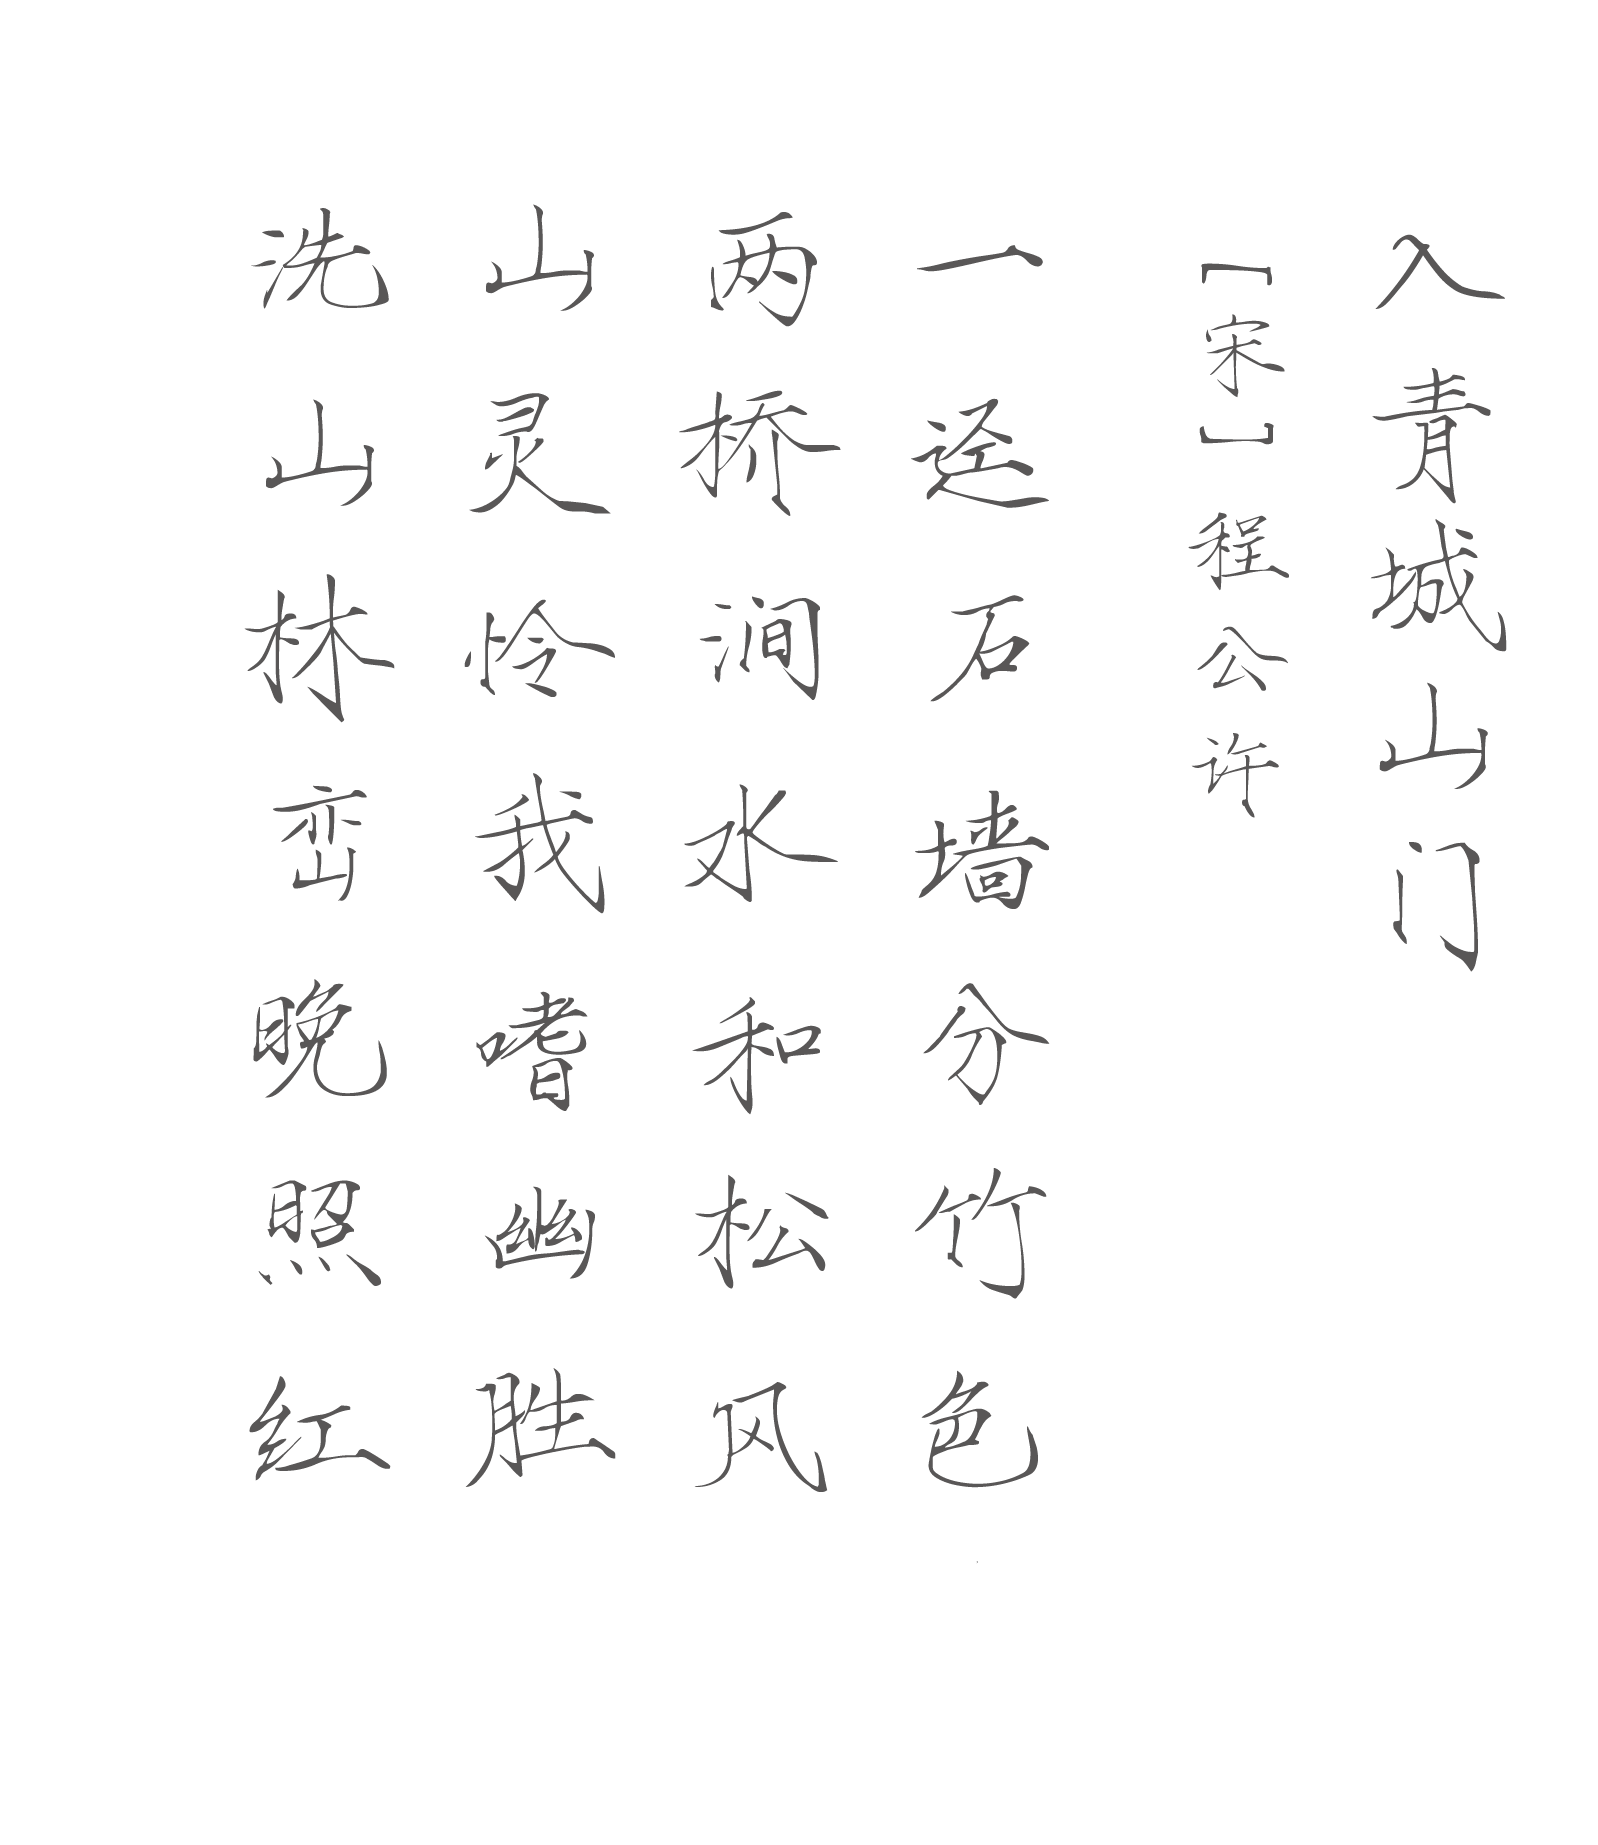 入青城山门
[宋]程公许
一迳石墙分竹色
两桥涧水和松风
山灵怜我嗜幽胜
洗山林峦晚照红